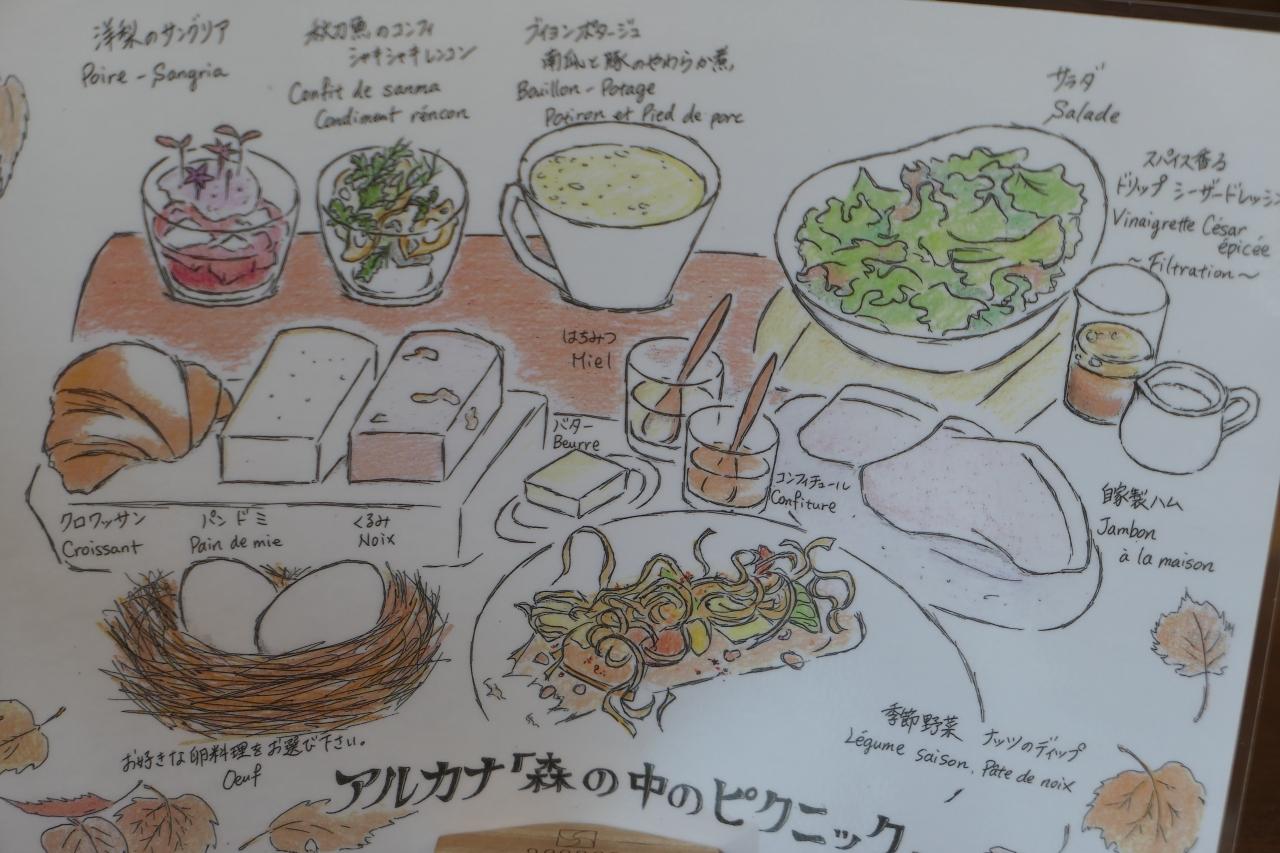 洋梨のサングリア
Poire - Sangria
秋刀魚のコンフィ
シャキシャキレンコン
Confit de sanma
Condiment réncon
ブイヨンポタージュ
南瓜と豚のやわらか煮
Bouillon - Potage
Potiron et Pied de porc
サラダ
Salade
スパイス香る
ドリップ シーザードレッシン
Vinaigrette César
épicée
~ Filtration ~
はちみつ
Miel
バター
Beurre
コンフィチュール
Confiture
クロワッサン
Croissant
パン ド ミ
Pain de mie
くるみ
Noix
自家製ハム
Jambon
à la maison
お好きな卵料理をお選び下さい。
Oeuf
季節野菜 ナッツのディップ
Légume saison, Pâte de noix
アルカナ「森の中のピクニック